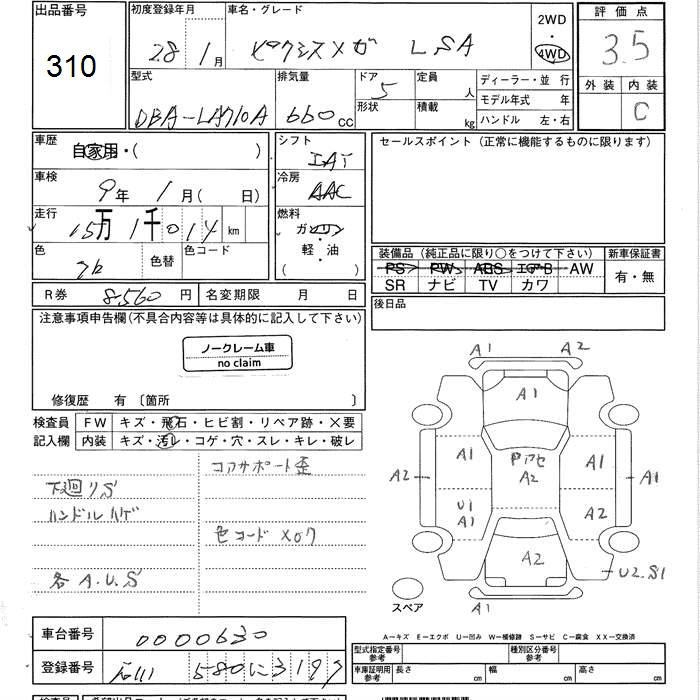 出品番号 初度登録年月 車名・グレード 2WD 評価点
310 28 1月 ピクシスメガ L SA 4WD 3.5
型式 排気量 ドア 定員 ディーラー・並行 外装 内装
DBA-LA710A 660cc 5 人 モデル年式 年 C
形状 積載 kg ハンドル 左・右
車歴 シフト セールスポイント (正常に機能するものに限ります)
自家用・( ) IAT
車検 冷房
9年 1月( 日) AAC
走行 燃料
15万1千014km ガソリン
色 色替 色コード 軽・油 装備品 (純正品に限り○をつけて下さい) 新車保証書
( ) PS PW ABS エアB AW 有・無
SR ナビ TV カワ
R券 8,560円 名変期限 月 日 後日品
注意事項申告欄(不具合内容等は具体的に記入して下さい)
ノークレーム車
no claim
修復歴 有 〔箇所 〕
検査員 FW キズ・飛石・ヒビ割・リペア跡・×要
記入欄 内装 キズ・汚レ・コゲ・穴・スレ・キレ・破レ
コアサポート歪
下廻リS
ハンドルハゲ
色コード X07
各A.U.S
A1 A2
A1
A1 A1
A2 A2 A1
U1
A1 A2
A2
U2.S1
スペア A1
A-キズ E-エクボ U-凹み W-補修跡 S-サビ C-腐食 XX-交換済
車台番号 0000630 型式指定番号 参考 種別区分番号 参考
登録番号 石川 580に3197 車庫証明用 参考 長さ cm 幅 cm 高さ cm